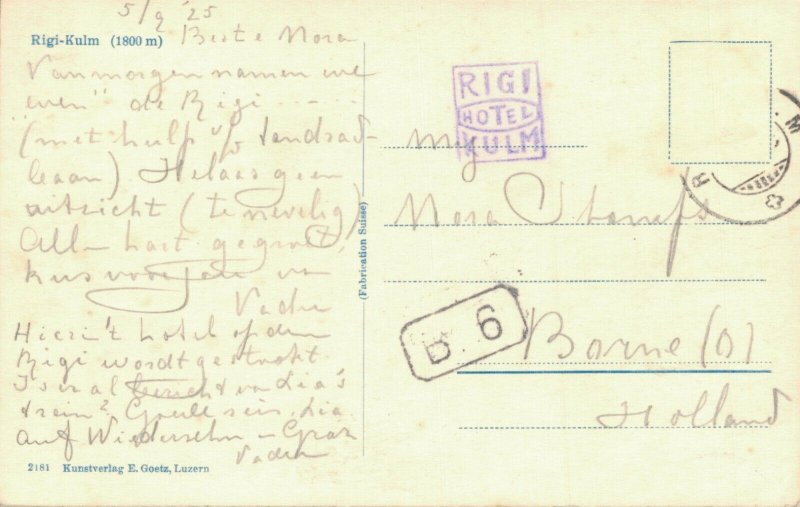 5/9 '25
Rigi-Kulm (1800 m) Beste Nora
Vanmorgen namen we
"even" de Rigi ....
(met hulp v/d tandrad-
baan) Helaas geen
uitzicht (te nevelig)
Allen hart. gegroet,
kus voor Jan en
Vader
Hier in 't hotel op den
Rigi wordt gestookt
Is er al bericht van Lia's
trein?
Auf Wiedersehn –
Vader
2181 Kunstverlag E. Goetz, Luzern
(Fabrication Suisse)
RIGI
HOTEL
KULM
Mej
Nora
B. 6
Borne (O)
Holland